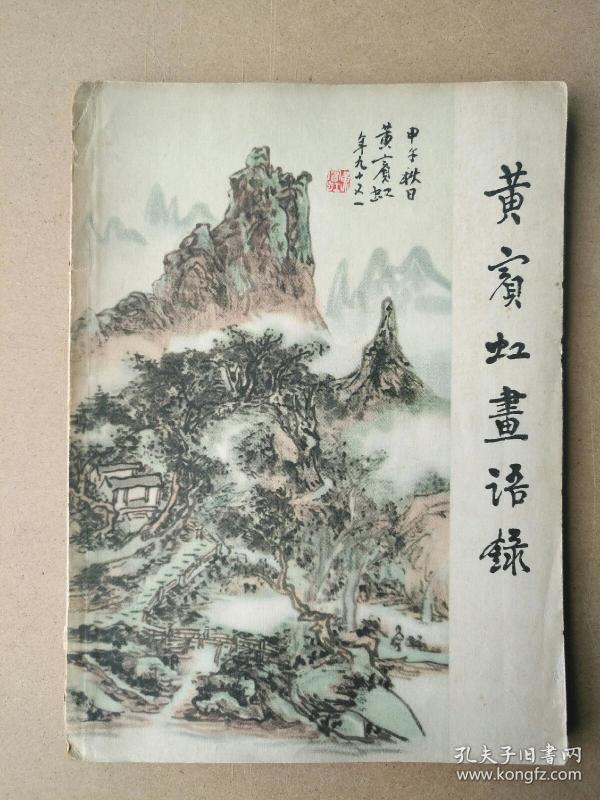 黄賓虹畫語錄
甲午秋日
黄賓虹
年九十又一
孔夫子旧书网
www.kongfz.com